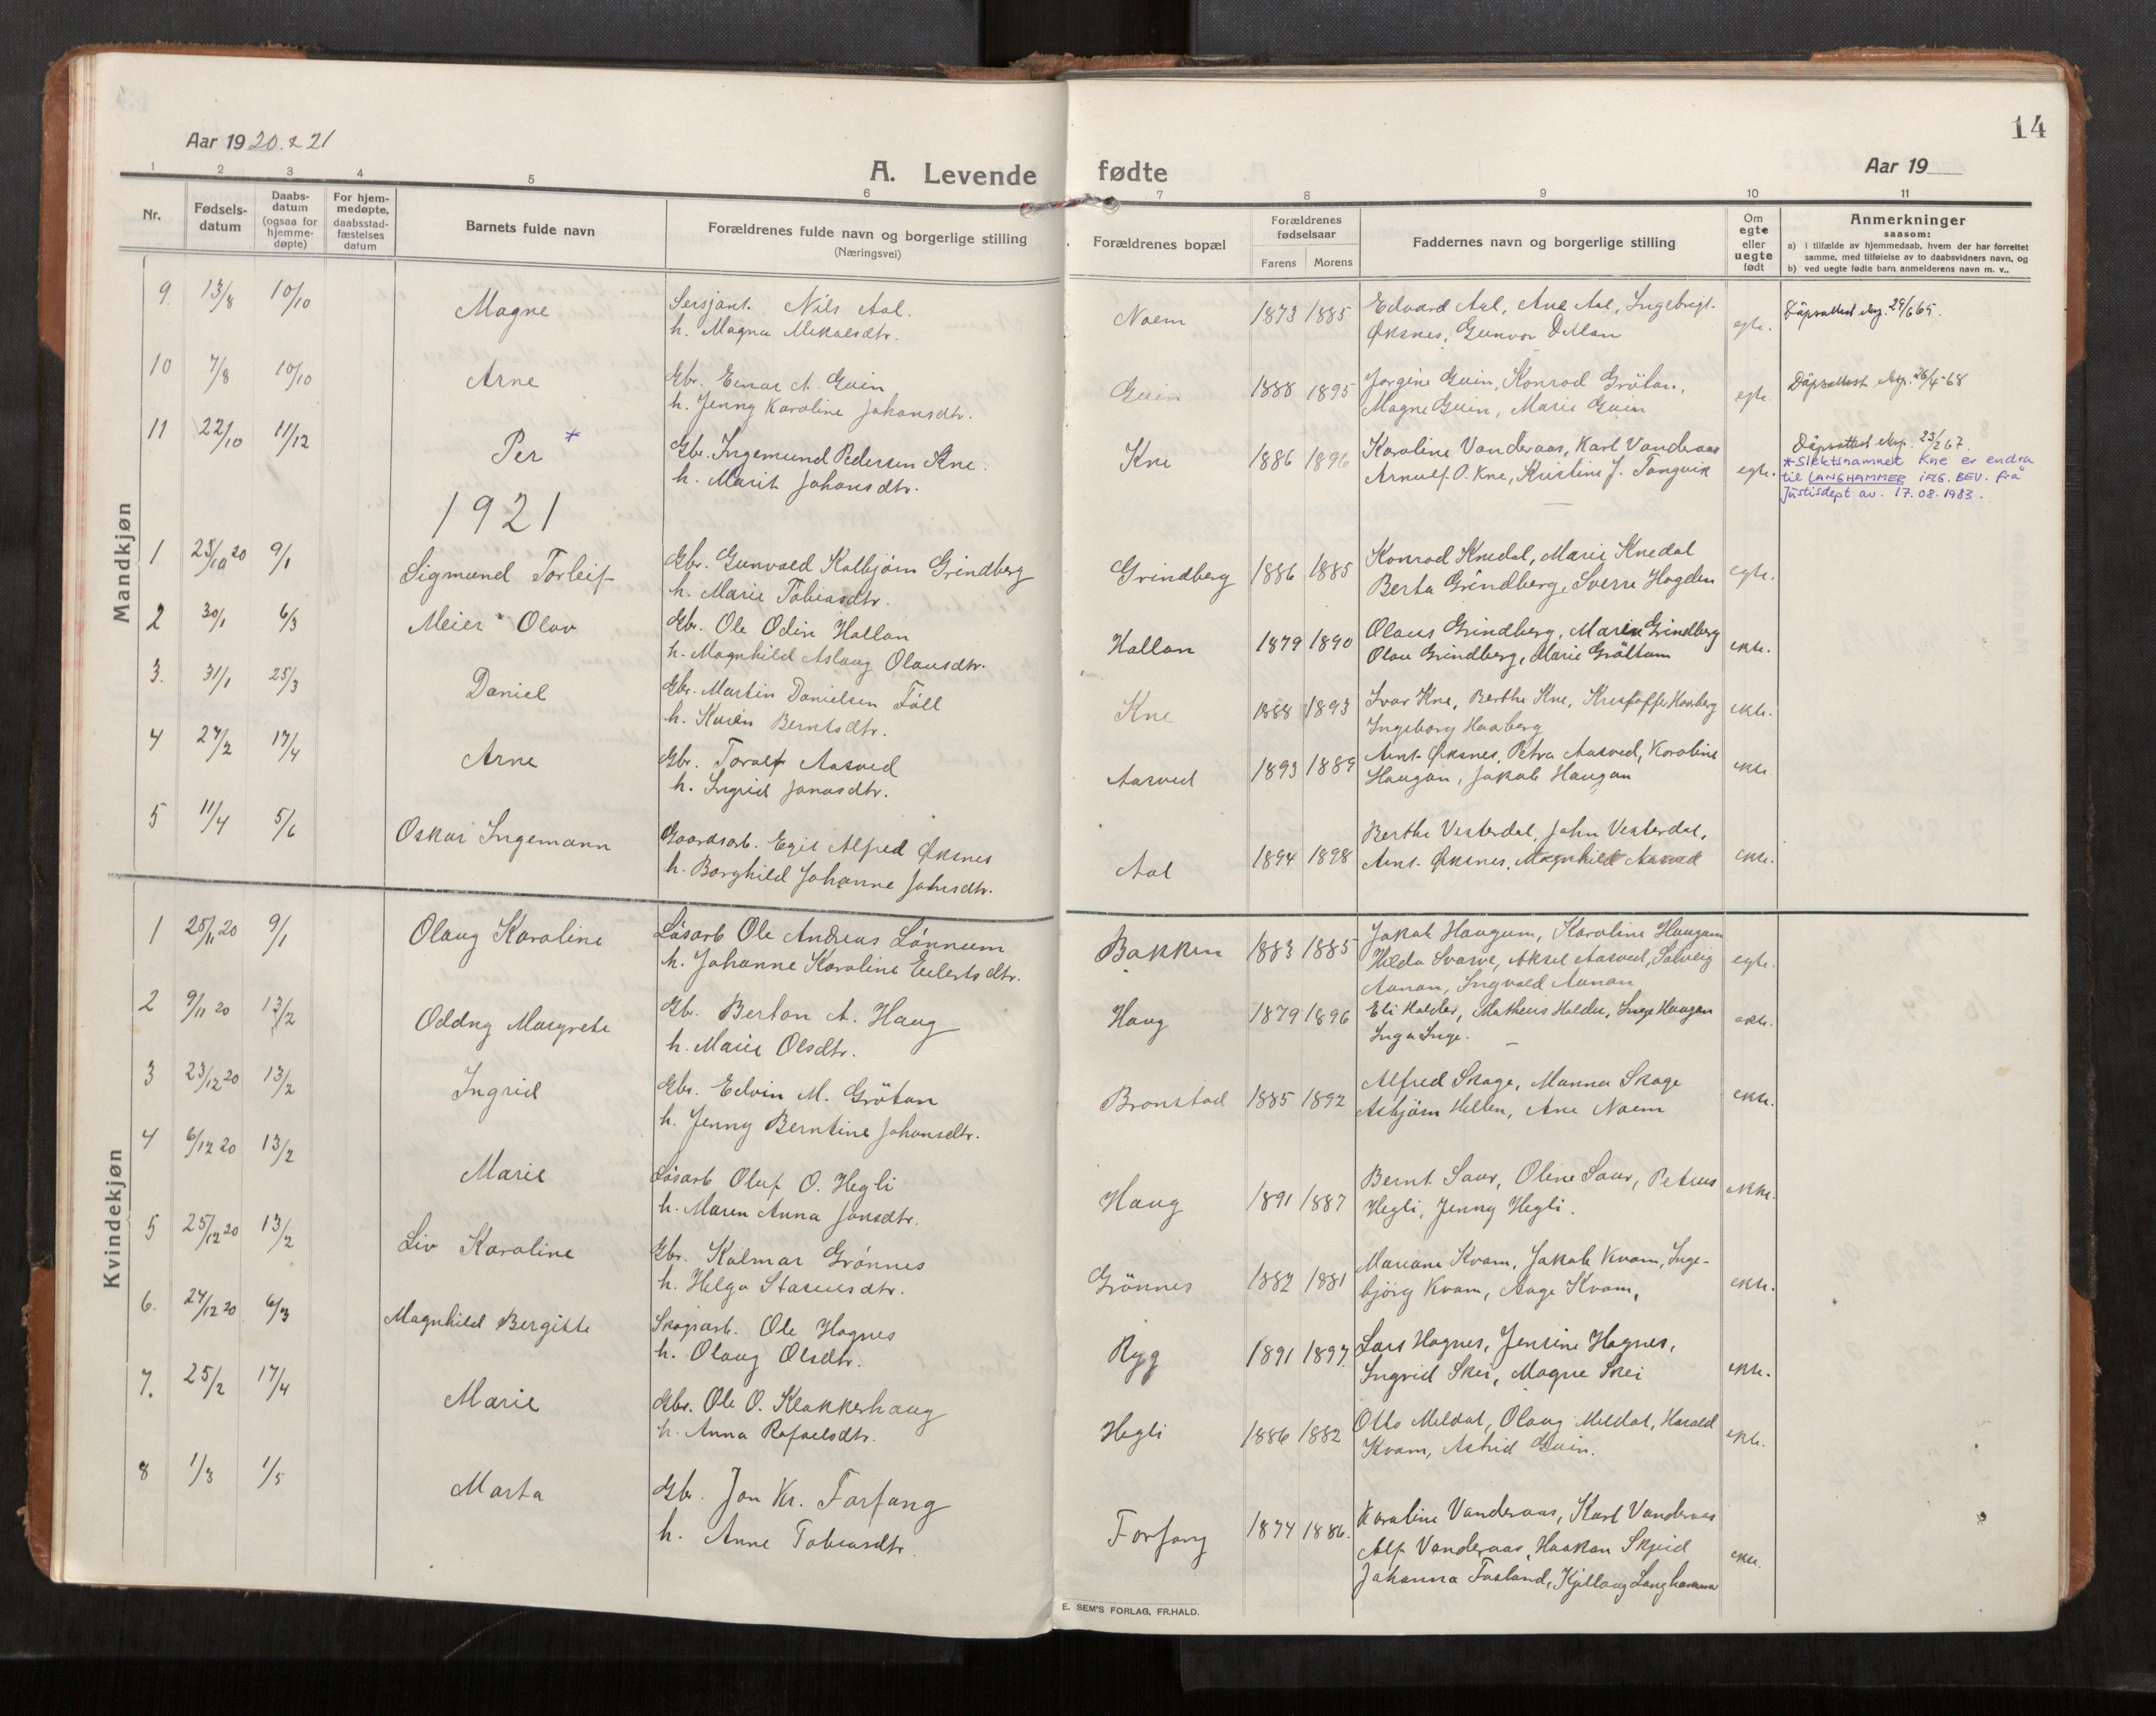 14
Aar 1920 & 21
A. Levende fødte
Aar 19
1 2 3 4 5 6 7 8 9 10 11
Nr.
Fødsels-datum
Daabs-datum (ogsaa for hjemme-døpte)
For hjem-medøpte, daabsstad-fæstelses datum
Barnets fulde navn
Forældrenes fulde navn og borgerlige stilling
(Næringsvei)
Forældrenes bopæl
Forældrenes fødselsaar
Farens Morens
Faddernes navn og borgerlige stilling
Om egte eller uegte født
Anmerkninger
saasom:
a) i tilfælde av hjemmedaab, hvem der har forrettet samme, med tilføielse av to daabsvidners navn, og
b) ved uegte fødte barn anmelderens navn m. v..
Mandkjøn
9. 13/8 10/10 Magne Sersjant. Nils Aal. Noem 1873 1885 Edvard Aal, Ane Aal, Ingebrigt. egte. Dåpsattest eksp. 29/6 65.
h. Magna Mikalsdtr. Øksnes, Gunvor Dillan
10 7/8 10/10 Arne Gbr. Einar A. Guin Guin 1888 1895 Jørgine Guin, Konrad Grötan, egte. Dåpsattest eksp. 26/4-68
h. Jenny Karoline Johansdtr. Magne Guin, Marie Guin
11 22/10 11/12 Per * Gbr. Ingemund Pedersen Kne. Kne 1886 1896 Karoline Vanderaas, Karl Vanderaas egte. Dåpsattest eksp. 23/2 67.
h. Marit Johansdtr. Arnulf O. Kne, Kristine J. Tangvik
* Slektsnamnet Kne er endra
til LANGHAMMER iflg. BEV. frå
Justisdept av. 17.08.1983.
1921
1 23/10 20 9/1 Sigmund Torleif Gbr. Gunvald Kolbjørn Grindberg Grindberg 1886 1885 Konrad Knedal, Marie Knedal egte.
h. Marie Tobiasdtr. Berta Grindberg, Sverre Hagden
2 30/1 6/3 Meier Olav Gbr. Ole Odin Hallan Hallan 1879 1890 Olaus Grindberg, Maren Grindberg ekte.
h. Magnhild Aslaug Olausdtr. Olav Grindberg, Marie Gråltum
3. 31/1 25/3 Daniel Gbr. Martin Danielsen Föll Kne 1888 1893 Ivar Kne, Berthe Kne, Kristoffer Haaberg ekte.
h. Karen Berntsdtr. Ingeborg Haaberg
4 27/2 17/4 Arne Gbr. Toralf Aasved Aasved 1893 1889 Arnt Øksnes, Petra Aasved, Karoline ekte
h. Ingrid Jonasdtr. Haugan, Jakob Haugan
5 11/4 5/6 Oskar Ingemann Gaardsarb. Egil Alfred Øksnes Aal 1894 1898 Berthe Vesterdal, John Vesterdal, ekte.
h. Borghild Johanne Johsdtr. Arnt Øksnes, Magnhild Aasved
Kvindekjøn
1 25/11 20 9/1 Olaug Karoline Løsarb Ole Andreas Lönnum Bakken 1883 1885 Jakob Haugum, Karoline Haugum egte.
h. Johanne Karoline Eilertsdtr. Hilda Svarve, Aksel Aasved, Solveig
Aunan, Ingvald Aunan
2 9/11 20 13/2 Oddny Margrete Gb. Berton A. Haug Haug 1879 1896 Eli Halder, Matheus Halder, Inge Haugan ekte.
h. Marie Olsdtr. Inga Inge.
3 23/12 20 13/2 Ingrid Gbr. Edvin M. Grötan Bronstad 1885 1892 Alfred Skage, Manna Skage ekte.
h. Jenny Berntine Johansdtr. Asbjørn Hellen, Ane Noem
4 6/12 20 13/2 Marie Løsarb Oluf O. Hegli Haug 1891 1887 Bernt Saur, Oline Saur, Petrus ekte.
h. Maren Anna Jonsdtr. Hegli, Jenny Hegli.
5 25/12 20 13/2 Liv Karoline Gbr. Kalmar Grönnes Grönnes 1882 1881 Mariane Kvam, Jakob Kvam, Inge- ekte.
h. Helga Stasiusdtr. björg Kvam, Aage Kvam,
6. 27/12 20 6/3 Magnhild Bergitte Skogsarb. Ole Hagnes Ryg 1891 1897. Lars Hagnes, Jensine Hagnes, ekte.
h. Olaug Olsdtr. Ingrid Skei, Magne Skei
7. 25/2 17/4 Marie Gbr. Ole O. Klakkerhaug Hegli 1886 1882 Otto Meldal, Olaug Meldal, Harald ekte.
h. Anna Rafaelsdtr. Kvam, Astrid Guin.
8 1/3 1/5 Marta Gb. Jon Kr. Forfang Forfang 1874 1886. Karoline Vanderaas, Karl Vanderaas ekte.
h. Anne Tobiasdtr. Alf Vanderaas, Haakon Skjeid
Johanna Fasland, Kjellaug Langhammer
E. SEM'S FORLAG, FR.HALD.